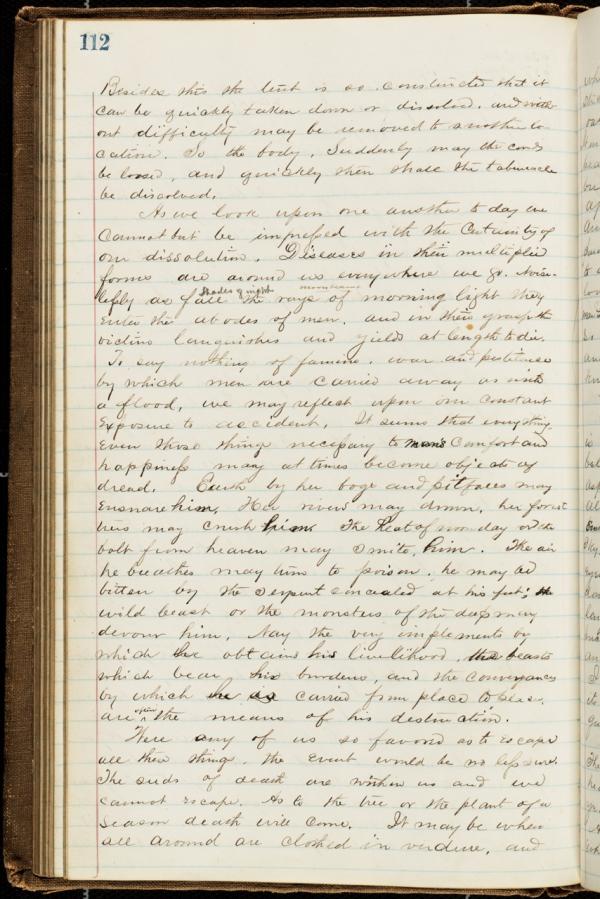 112
Besides this the tent is so constructed that it
can be quickly taken down or dissolved, and with-
out difficulty may be removed to another lo-
cation. So the body. Suddenly may the cords
be loosed, and quickly then shall the tabernacle
be dissolved.
As we look upon one another to day we
cannot but be impressed with the certainty of
our dissolution. Diseases in their multiplied
forms are around us everywhere we go. Noise-
shades of night
lessly as fall the rays of morning light they
enter the abodes of men, and in their grasp the
victim languishes and yields at length to die.
To say nothing of famine, war and pestilence
by which men are carried away as with
a flood, we may reflect upon our constant
exposure to accident. It seems that everything
even those things necessary to man's comfort and
happiness may at times become objects of
dread. Earth by her bogs and pitfalls may
ensnare him, Her rivers may drown, her forest
trees may crush him. The heat of noon day or the
bolt from heaven may smite him. The air
he breathes may turn to poison, he may be
bitten by the serpent concealed at his feet; the
wild beast or the monsters of the deep may
devour him. Nay the very implements by
which he obtains his livelihood, the beasts
which bear his burdens, and the conveyances
by which he is carried from place to place,
are often the means of his destruction.
Were any of us so favored as to escape
all these things, the event would be no less sure.
The seeds of death are within us and we
cannot escape. As to the tree or the plant of a
season death will come. It may be when
all around are clothed in verdure, and